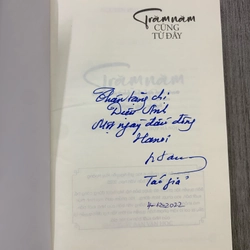 Trăm năm
CÙNG
TỪ ĐÂY
Thân tặng chị
Diệu Anh
Một ngày đầu đông
Hanoi
Tác giả
12.2022